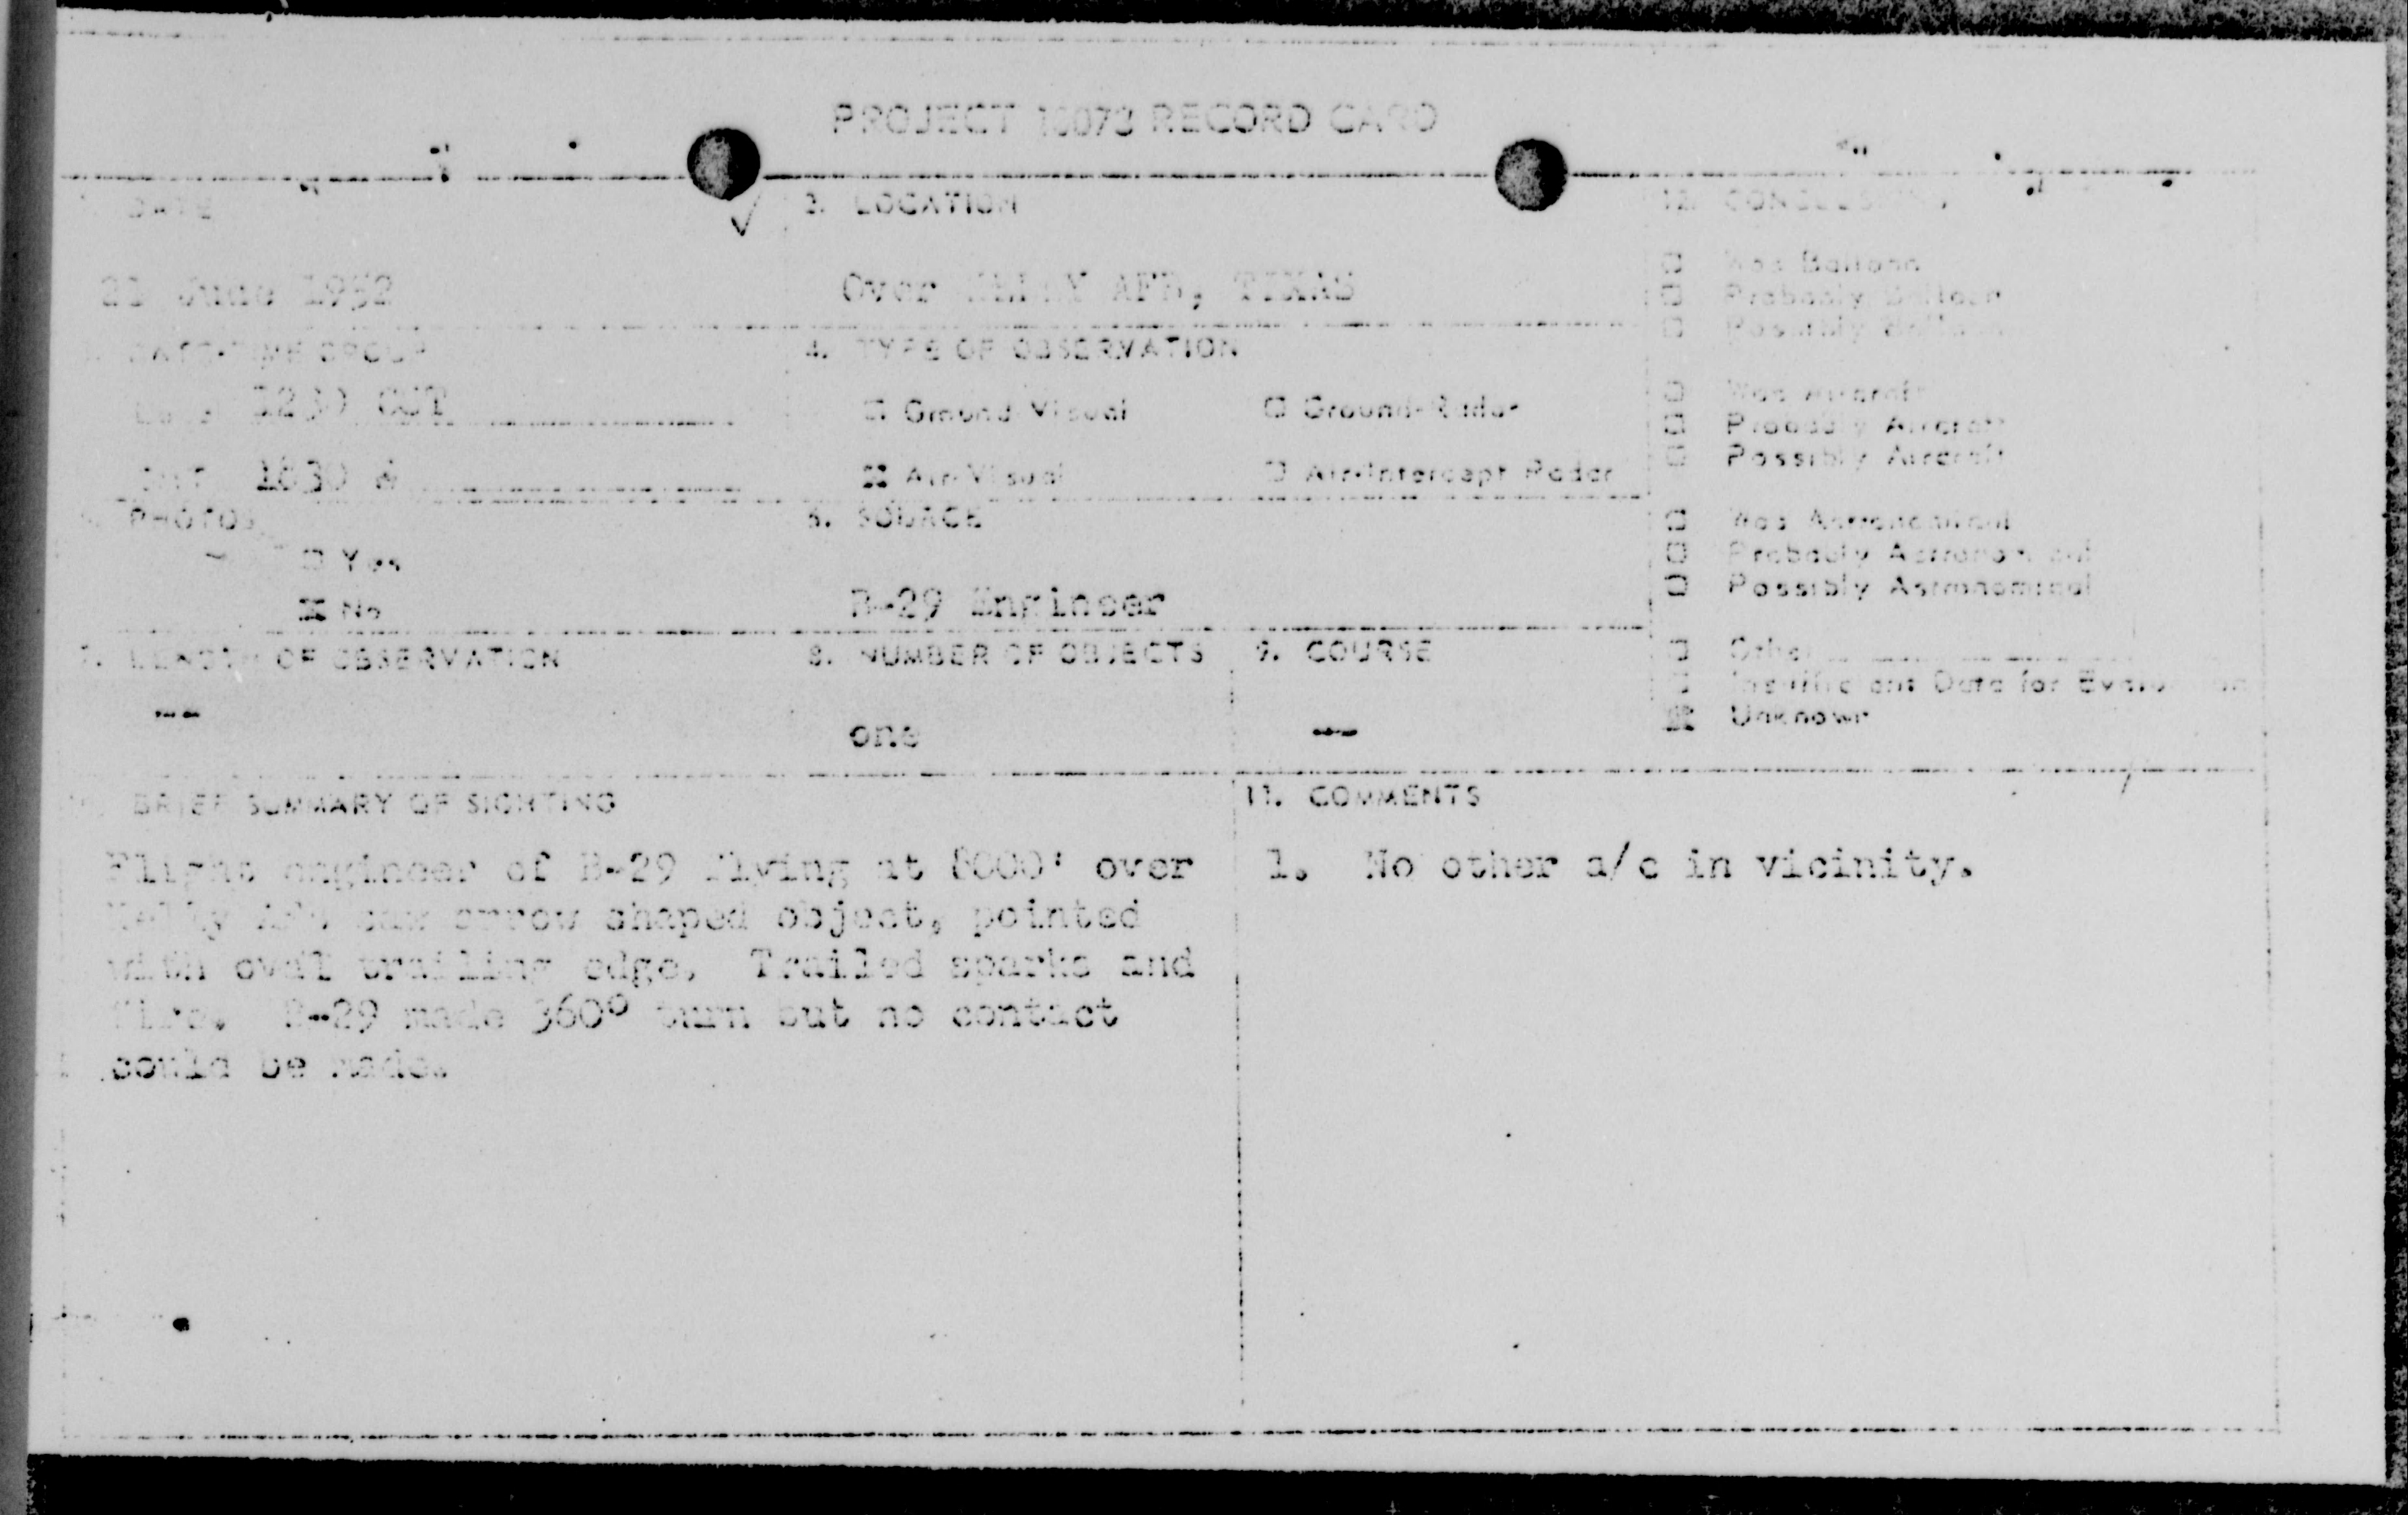 PROJECT 10073 RECORD CARD
DATE
2. LOCATION
12. CONCLUSIONS
June 1952
Over KELLY AFB, TEXAS
Was Balloon
Probably Balloon
Possibly Balloon
DATE-TIME GROUP
4. TYPE OF OBSERVATION
1230 CUT
Ground-Visual
Ground-Radar
Was Aircraft
Probably Aircraft
Possibly Aircraft
GMT 1830
Air-Visual
Air-Intercept Radar
PHOTOS
6. SOURCE
Yes
No
B-29 Engineer
Was Astronomical
Probably Astronomical
Possibly Astronomical
7. LENGTH OF OBSERVATION
8. NUMBER OF OBJECTS
9. COURSE
Other
Insufficient Data for Evaluation
Unknown
--
one
--
BRIEF SUMMARY OF SIGHTING
11. COMMENTS
Flight engineer of B-29 flying at 8000' over
Kelly AFB saw arrow shaped object, pointed
with oval trailing edge. Trailed sparks and
fire. B-29 made 360° turn but no contact
could be made.
1. No other a/c in vicinity.